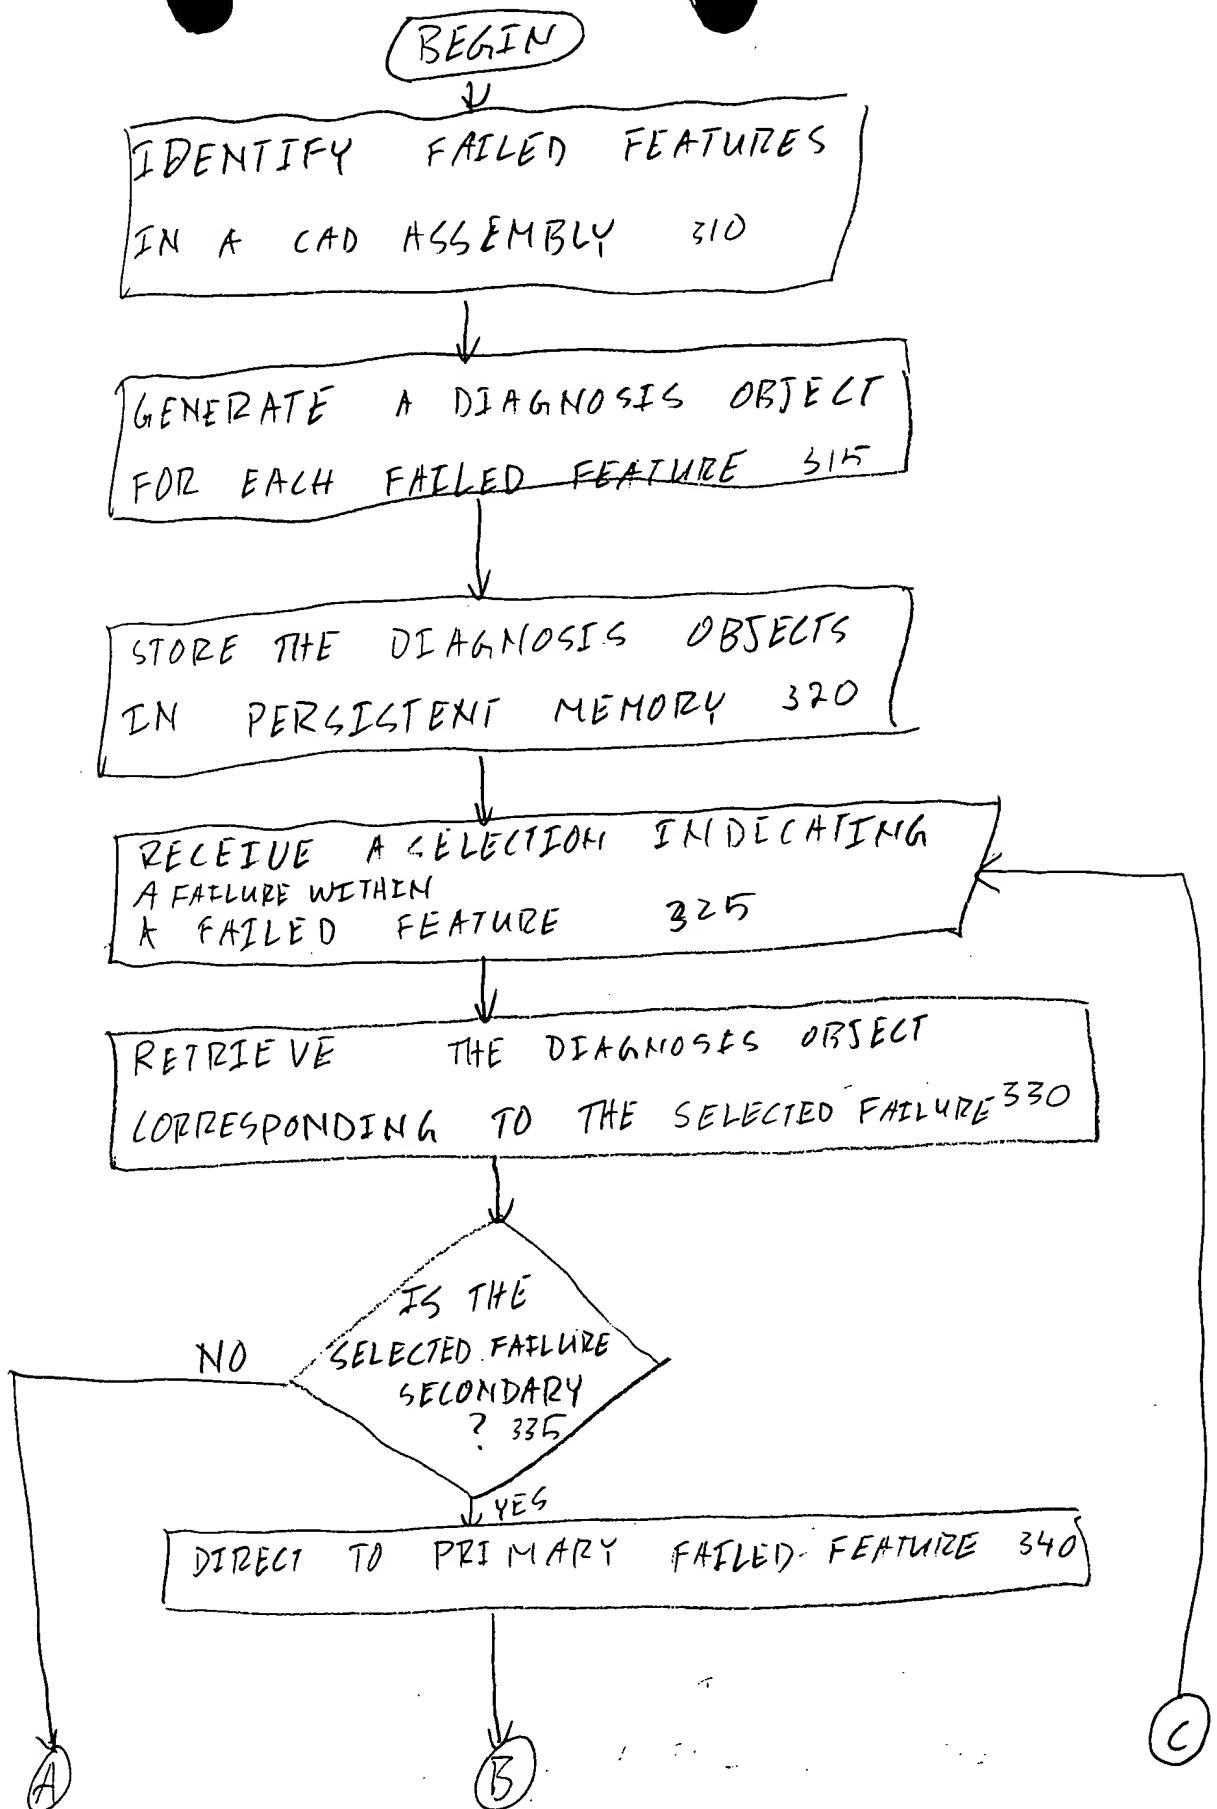 BEGIN
IDENTIFY FAILED FEATURES
IN A CAD ASSEMBLY 310
GENERATE A DIAGNOSIS OBJECT
FOR EACH FAILED FEATURE 315
STORE THE DIAGNOSIS OBJECTS
IN PERSISTENT MEMORY 320
RECEIVE A SELECTION INDICATING
A FAILURE WITHIN
A FAILED FEATURE 325
RETRIEVE THE DIAGNOSES OBJECT
CORRESPONDING TO THE SELECTED FAILURE 330
IS THE
SELECTED FAILURE
SECONDARY
? 335
NO
YES
DIRECT TO PRIMARY FAILED FEATURE 340
A
B
C